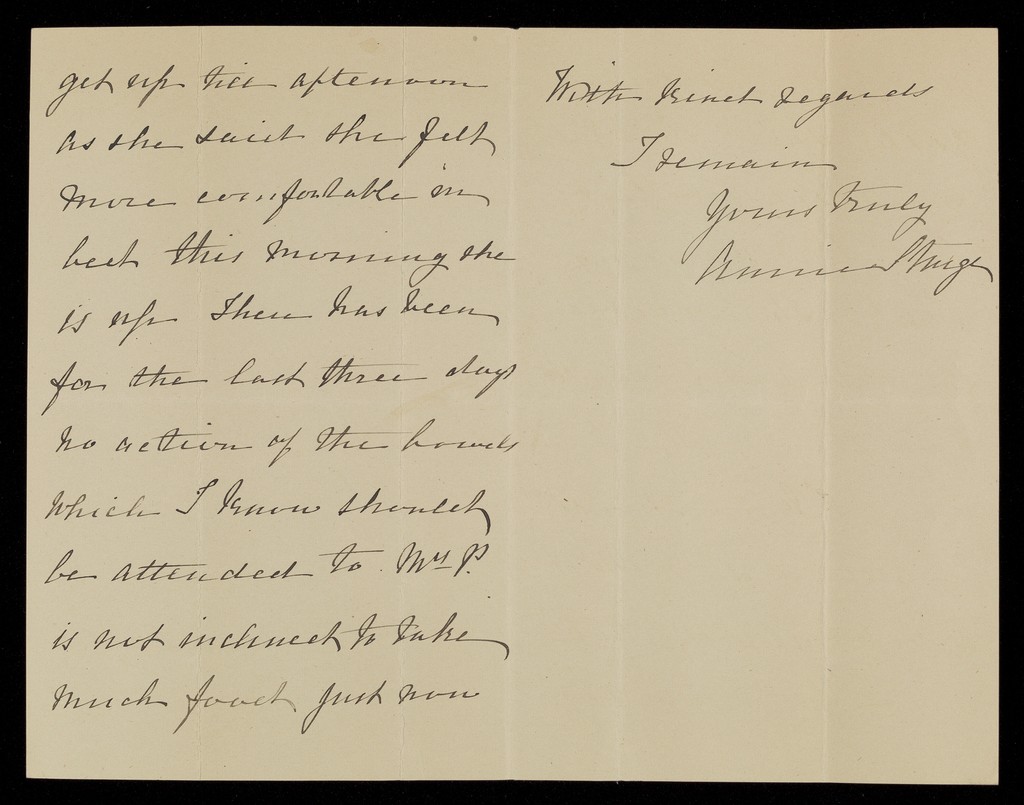 get up till afternoon
as she said she felt
more comfortable in
bed this morning she
is up There has been
for the last three days
no action of the bowels
which I know should
be attended to Mrs P.
is not inclined to take
much food just now
With kind regards
I remain
Yours truly
Annie Sturge